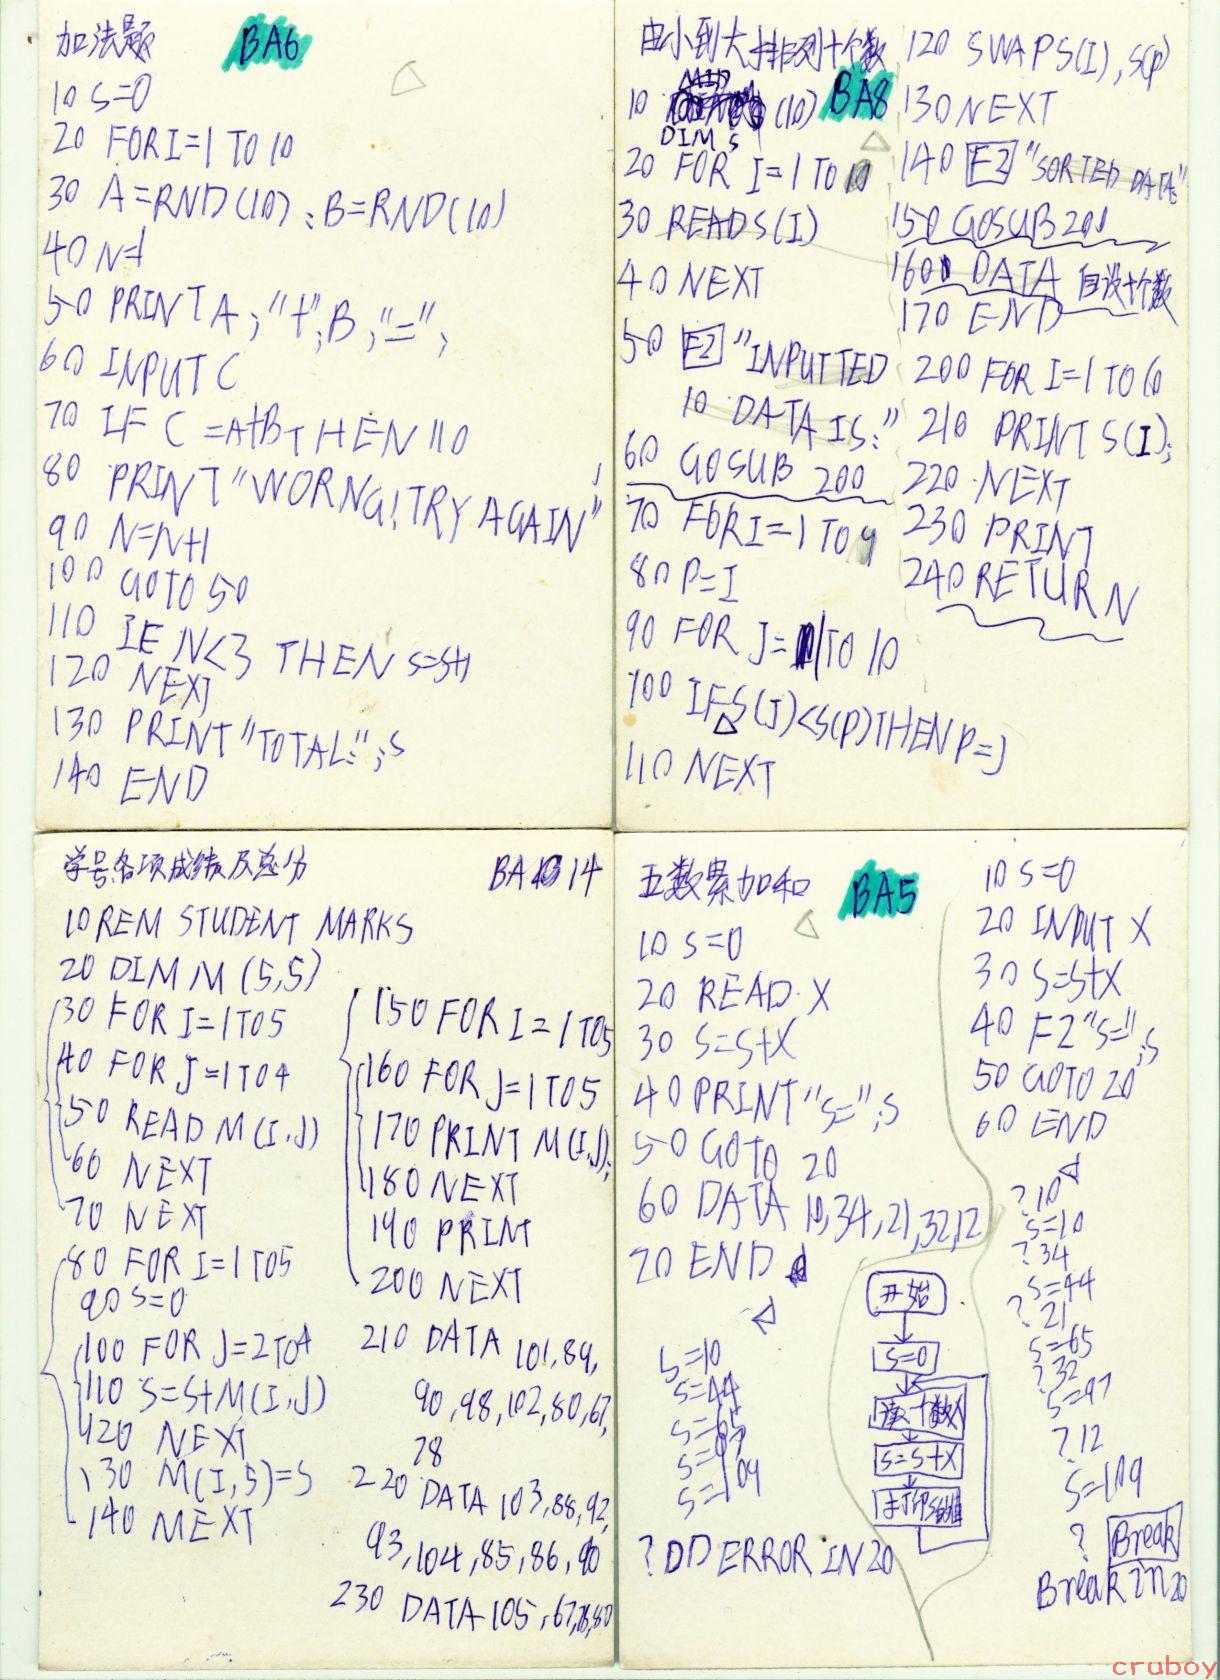 加法题 BA6
10 S=0
20 FOR I=1 TO 10
30 A=RND(10):B=RND(10)
40 N=1
50 PRINT A;"+";B;"=";
60 INPUT C
70 IF C=A+B THEN 110
80 PRINT "WORNG! TRY AGAIN"
90 N=N+1
100 GOTO 50
110 IF N<3 THEN S=S+1
120 NEXT
130 PRINT "TOTAL:";S
140 END
由小到大排列十个数 BA8
10 DIM S(10)
20 FOR I=1 TO 10
30 READ S(I)
40 NEXT
50 F2 "INPUTTED
10 DATA IS:"
60 GOSUB 200
70 FOR I=1 TO 9
80 P=I
90 FOR J=1 TO 10
100 IF S(J)<S(P) THEN P=J
110 NEXT
120 SWAP S(I),S(P)
130 NEXT
140 F2 "SORTED DATA:"
150 GOSUB 200
160 DATA 自设十个数
170 END
200 FOR I=1 TO 10
210 PRINT S(I);
220 NEXT
230 PRINT
240 RETURN
学号各项成绩及总分 BA14
10 REM STUDENT MARKS
20 DIM M(5,5)
30 FOR I=1 TO 5
40 FOR J=1 TO 4
50 READ M(I,J)
60 NEXT
70 NEXT
80 FOR I=1 TO 5
90 S=0
100 FOR J=2 TO 4
110 S=S+M(I,J)
120 NEXT
130 M(I,5)=S
140 NEXT
150 FOR I=1 TO 5
160 FOR J=1 TO 5
170 PRINT M(I,J);
180 NEXT
190 PRINT
200 NEXT
210 DATA 101,89,
90,98,102,80,67,
78
220 DATA 103,88,92,
93,104,85,86,90
230 DATA 105,67,78,80
五数累加和 BA5
10 S=0
20 READ X
30 S=S+X
40 PRINT "S=";S
50 GOTO 20
60 DATA 10,34,21,32,12
70 END
S=10
S=44
S=65
S=97
S=109
?DD ERROR IN 20
开始
S=0
读十数入
S=S+X
打印S的值
10 S=0
20 INPUT X
30 S=S+X
40 F2 "S=";S
50 GOTO 20
60 END
?10
S=10
?34
S=44
?21
S=65
?32
S=97
?12
S=109
? Break
Break in 20
cruboy